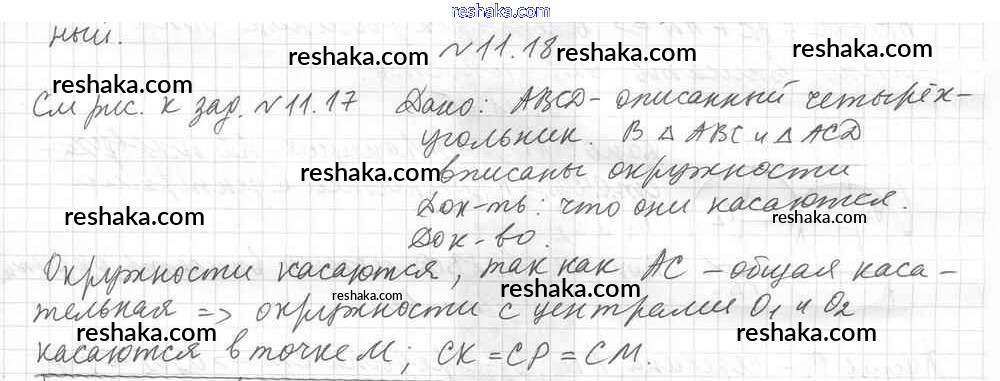 reshaka.com
ный.
№ 11.18
reshaka.com
reshaka.com
reshaka.com
См рис. к зад. № 11.17 Дано: ABCD - описанный четырёх-
угольник. В △ ABC и △ ACD
reshaka.com
reshaka.com
вписаны окружности
reshaka.com
Док-ть: что они касаются.
reshaka.com
Док-во.
Окружности касаются, так как AC - общая каса-
reshaka.com
reshaka.com
тельная => окружности с центрами O₁ и O₂
reshaka.com
reshaka.com
reshaka.com
касаются в точке M; CK = CP = CM.
reshaka.com